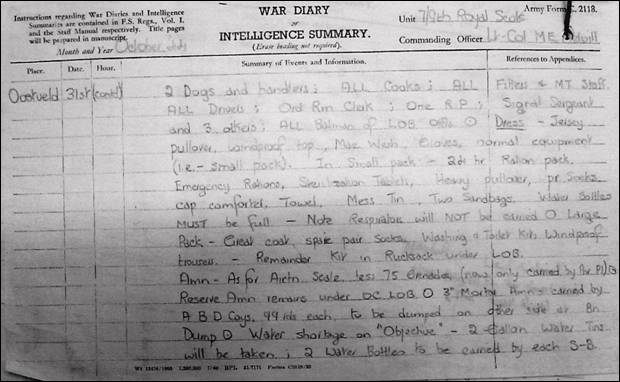 Instructions regarding War Diaries and Intelligence
Summaries are contained in F.S. Regs., Vol. I.
and the Staff Manual respectively. Title pages
will be prepared in manuscript.
Month and Year October
WAR DIARY
or
INTELLIGENCE SUMMARY.
(Erase heading not required).
Army Form C. 2118.
Unit 7/9th Royal Scots
Commanding Officer Lt-Col M E
Place. Date. Hour. Summary of Events and Information. References to Appendices.
Oostveld 31st (contd) 2 Dogs and handlers; ALL Cooks; ALL Fitters & MT Staff.
ALL Drivers; Ord Rm Clerk; One R.P; Signal Sergeant
and 3 others; ALL Batmen of LOB Offrs Dress - Jersey
pullover, windproof top, Mae West, Gloves, normal equipment
(i.e. - small pack). In Small pack - 24 hr Ration pack,
Emergency Rations, Sterilization Tablets, Heavy pullover, pr. Socks
cap comforter, Towel, Mess Tin, Two Sandbags. Water Bottles
MUST be full - Note Respirators will NOT be carried Large
Pack - Great coat, spare pair Socks, Washing & Toilet Kit, Windproof
trousers. - Remainder Kit in Rucksack under LOB.
Amn - As for Airtn Scale less 75 Grenades (now only carried by Pnr Pl)
Reserve Amn remains under OC LOB 3" Mortar Amn - carried by
A B D Coys, 44 rds each, to be dumped on other side at Bn
Dump Water shortage on "Objective" - 2 Gallon Water Tins
will be taken; 2 Water Bottles to be carried by each S-B.